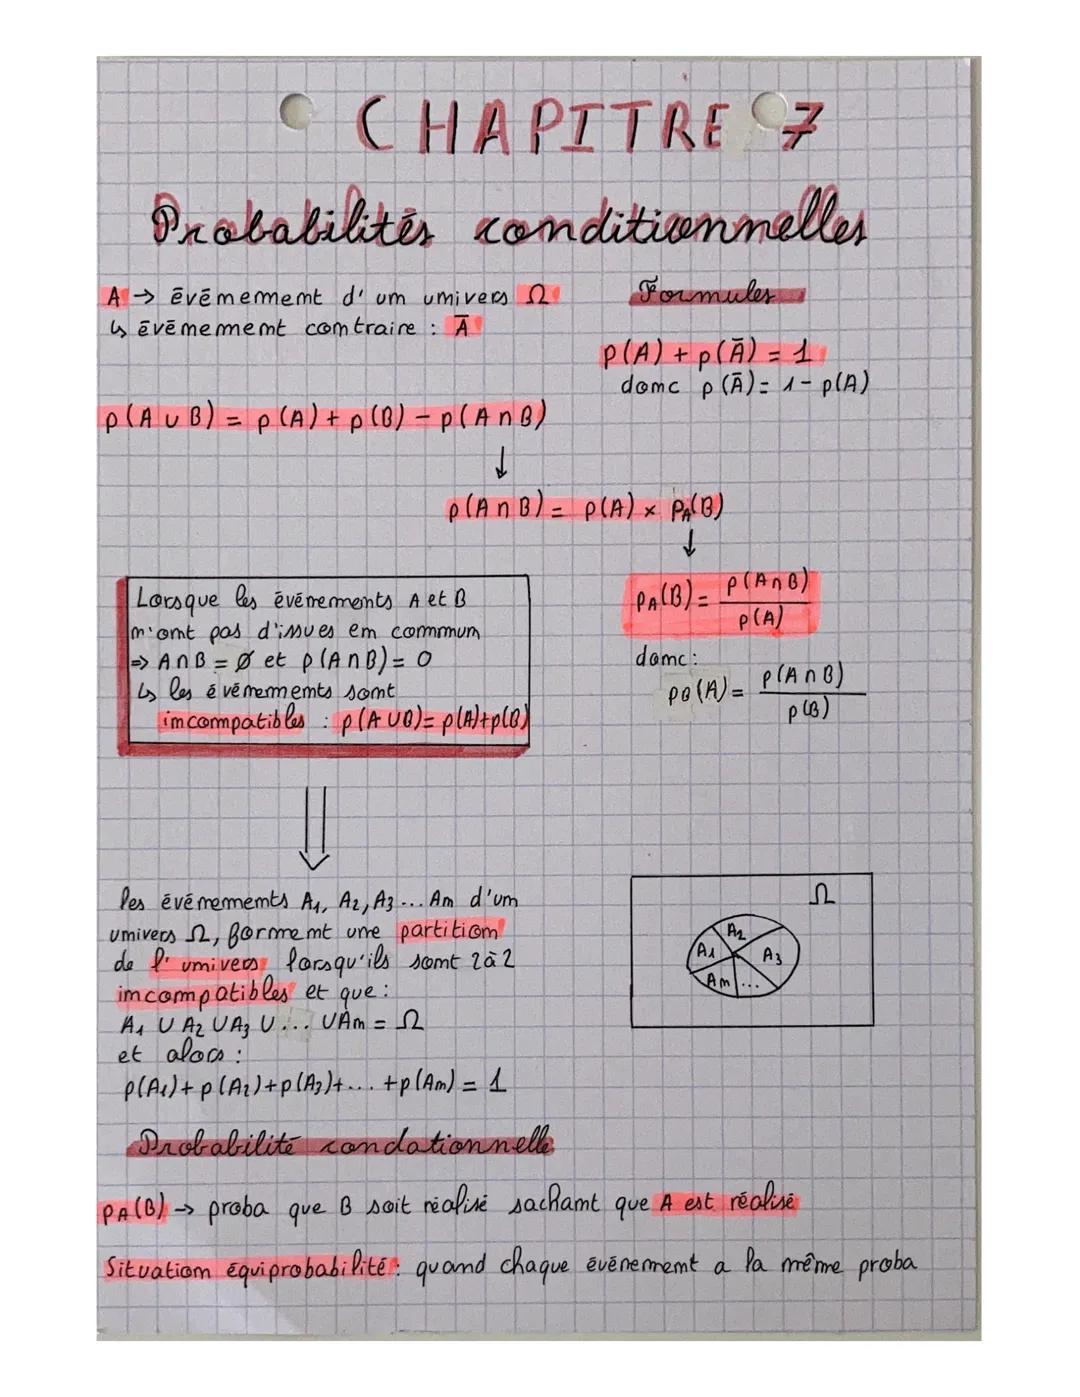 CHAPITRE 7
Probabilités conditionnelles
A → événement d'un univers Ω
↳ événement contraire : Ā
Formules
p(A) + p(Ā) = 1
donc p(Ā) = 1 - p(A)
p(A ∪ B) = p(A) + p(B) - p(A ∩ B)
↓
p(A ∩ B) = p(A) × pA(B)
↓
Lorsque les événements A et B
n'ont pas d'issues en commun
⇒ A ∩ B = ∅ et p(A ∩ B) = 0
↳ les événements sont
incompatibles : p(A ∪ B) = p(A) + p(B)
pA(B) = p(A ∩ B) / p(A)
donc :
pB(A) = p(A ∩ B) / p(B)
⇓
les événements A1, A2, A3 ... Am d'un
univers Ω, forment une partition
de l'univers lorsqu'ils sont 2 à 2
incompatibles et que :
A1 ∪ A2 ∪ A3 ∪ ... ∪ Am = Ω
et alors :
p(A1) + p(A2) + p(A3) + ... + p(Am) = 1
Ω
A2
A1
A3
Am
...
Probabilité condationnelle
pA(B) → proba que B soit réalisé sachant que A est réalisé
Situation équiprobabilité : quand chaque événement a la même proba